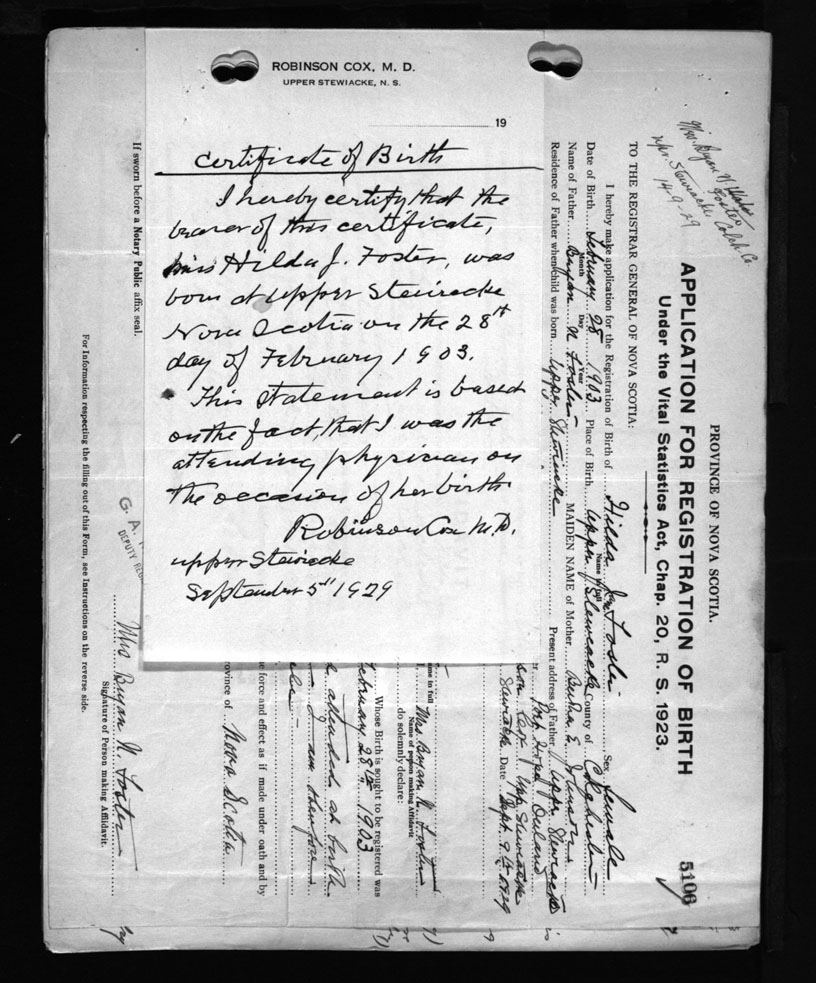 ROBINSON COX, M. D.
UPPER STEWIACKE, N. S.
19
Certificate of Birth
I hereby certify that the
bearer of this certificate,
Miss Hilda J. Foster, was
born at Upper Stewiacke
Nova Scotia on the 28th
day of February 1903.
This statement is based
on the fact, that I was the
attending physician on
the occasion of her birth.
Robinson Cox M.D.
Upper Stewiacke
September 5" 1929
PROVINCE OF NOVA SCOTIA.
APPLICATION FOR REGISTRATION OF BIRTH
5106
Under the Vital Statistics Act, Chap. 20, R. S. 1923.
Mrs. Bryan N.
Foster
Upr. Stewiacke Colch. Co.
14-9-29
TO THE REGISTRAR GENERAL OF NOVA SCOTIA:
I hereby make application for the Registration of Birth of Hilda J. Foster Sex female
Name in full
Date of Birth February 28 1903 Place of Birth Upper Stewiacke County of Colchester
Month Day Year
Name of Father Bryan N Foster MAIDEN NAME of Mother Bertha E. Johnson
Residence of Father when child was born Upper Stewiacke Present address of Father Upper Stewiacke
Stewiacke Date Sept. 9th 1929
me in full
Mrs. Bryan N. Foster
Name of person making Affidavit
do solemnly declare:
Whose Birth is sought to be registered was
February 28th 1903
attended at birth
I am therefore
e force and effect as if made under oath and by
rovince of Nova Scotia
Mrs Bryan N. Foster
Signature of Person making Affidavit.
G. A.
DEPUTY REG
If sworn before a Notary Public affix seal.
For Information respecting the filling out of this Form, see Instructions on the reverse side.